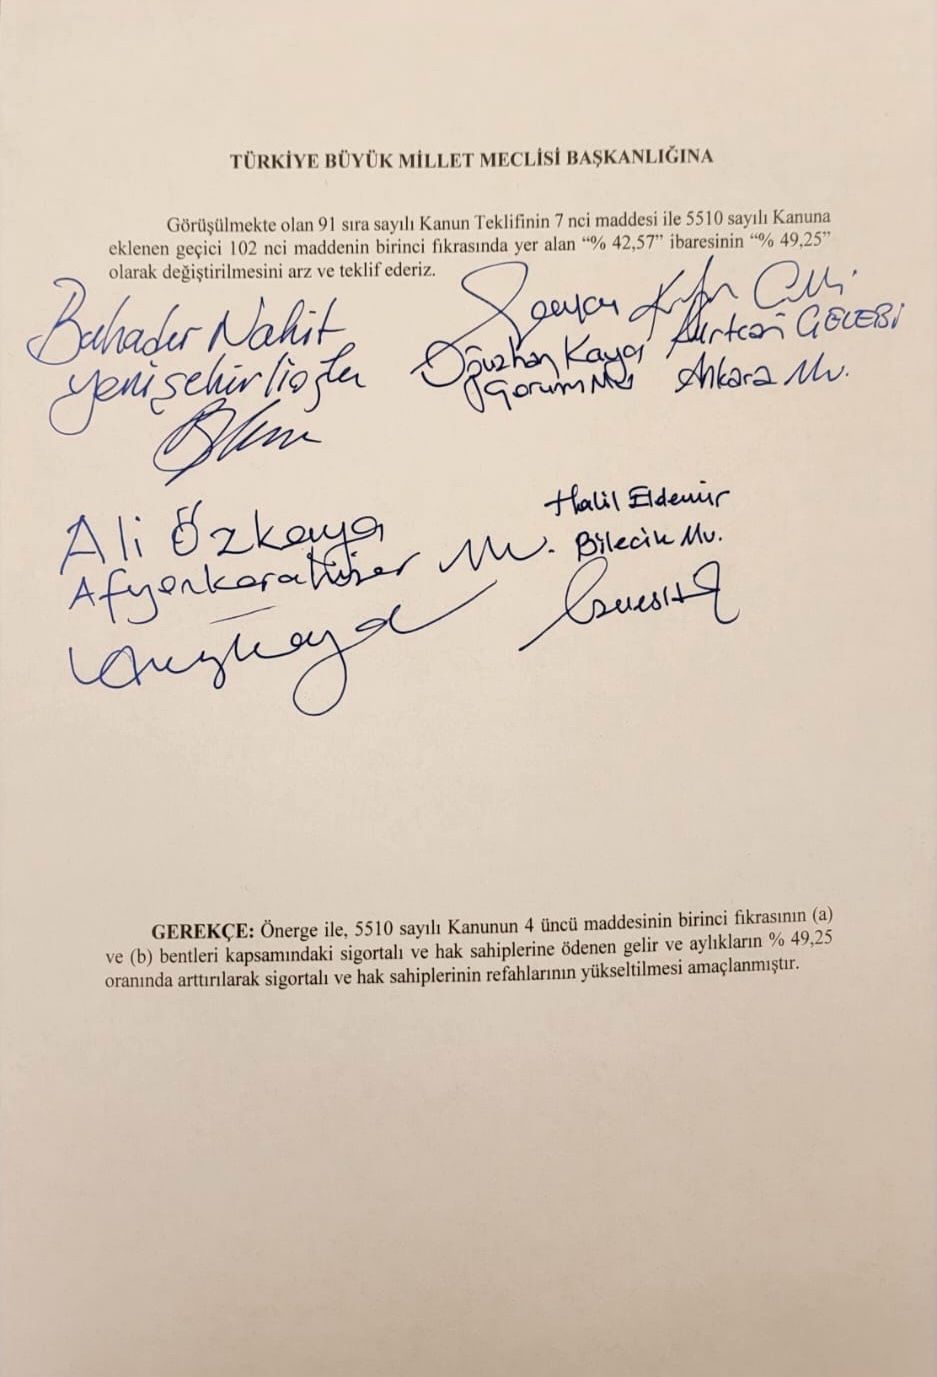 TÜRKİYE BÜYÜK MİLLET MECLİSİ BAŞKANLIĞINA
Görüşülmekte olan 91 sıra sayılı Kanun Teklifinin 7 nci maddesi ile 5510 sayılı Kanuna
eklenen geçici 102 nci maddenin birinci fıkrasında yer alan “% 42,57” ibaresinin “% 49,25”
olarak değiştirilmesini arz ve teklif ederiz.
Bahadır Nahit
Yenişehirlioğlu
Oğuzhan Kaya
Çorum Mv
Kurtcan ÇELEBİ
Ankara Mv.
Ali Özkaya
Afyonkarahisar Mv.
Halil Eldemir
Bilecik Mv.
GEREKÇE: Önerge ile, 5510 sayılı Kanunun 4 üncü maddesinin birinci fıkrasının (a)
ve (b) bentleri kapsamındaki sigortalı ve hak sahiplerine ödenen gelir ve aylıkların % 49,25
oranında arttırılarak sigortalı ve hak sahiplerinin refahlarının yükseltilmesi amaçlanmıştır.